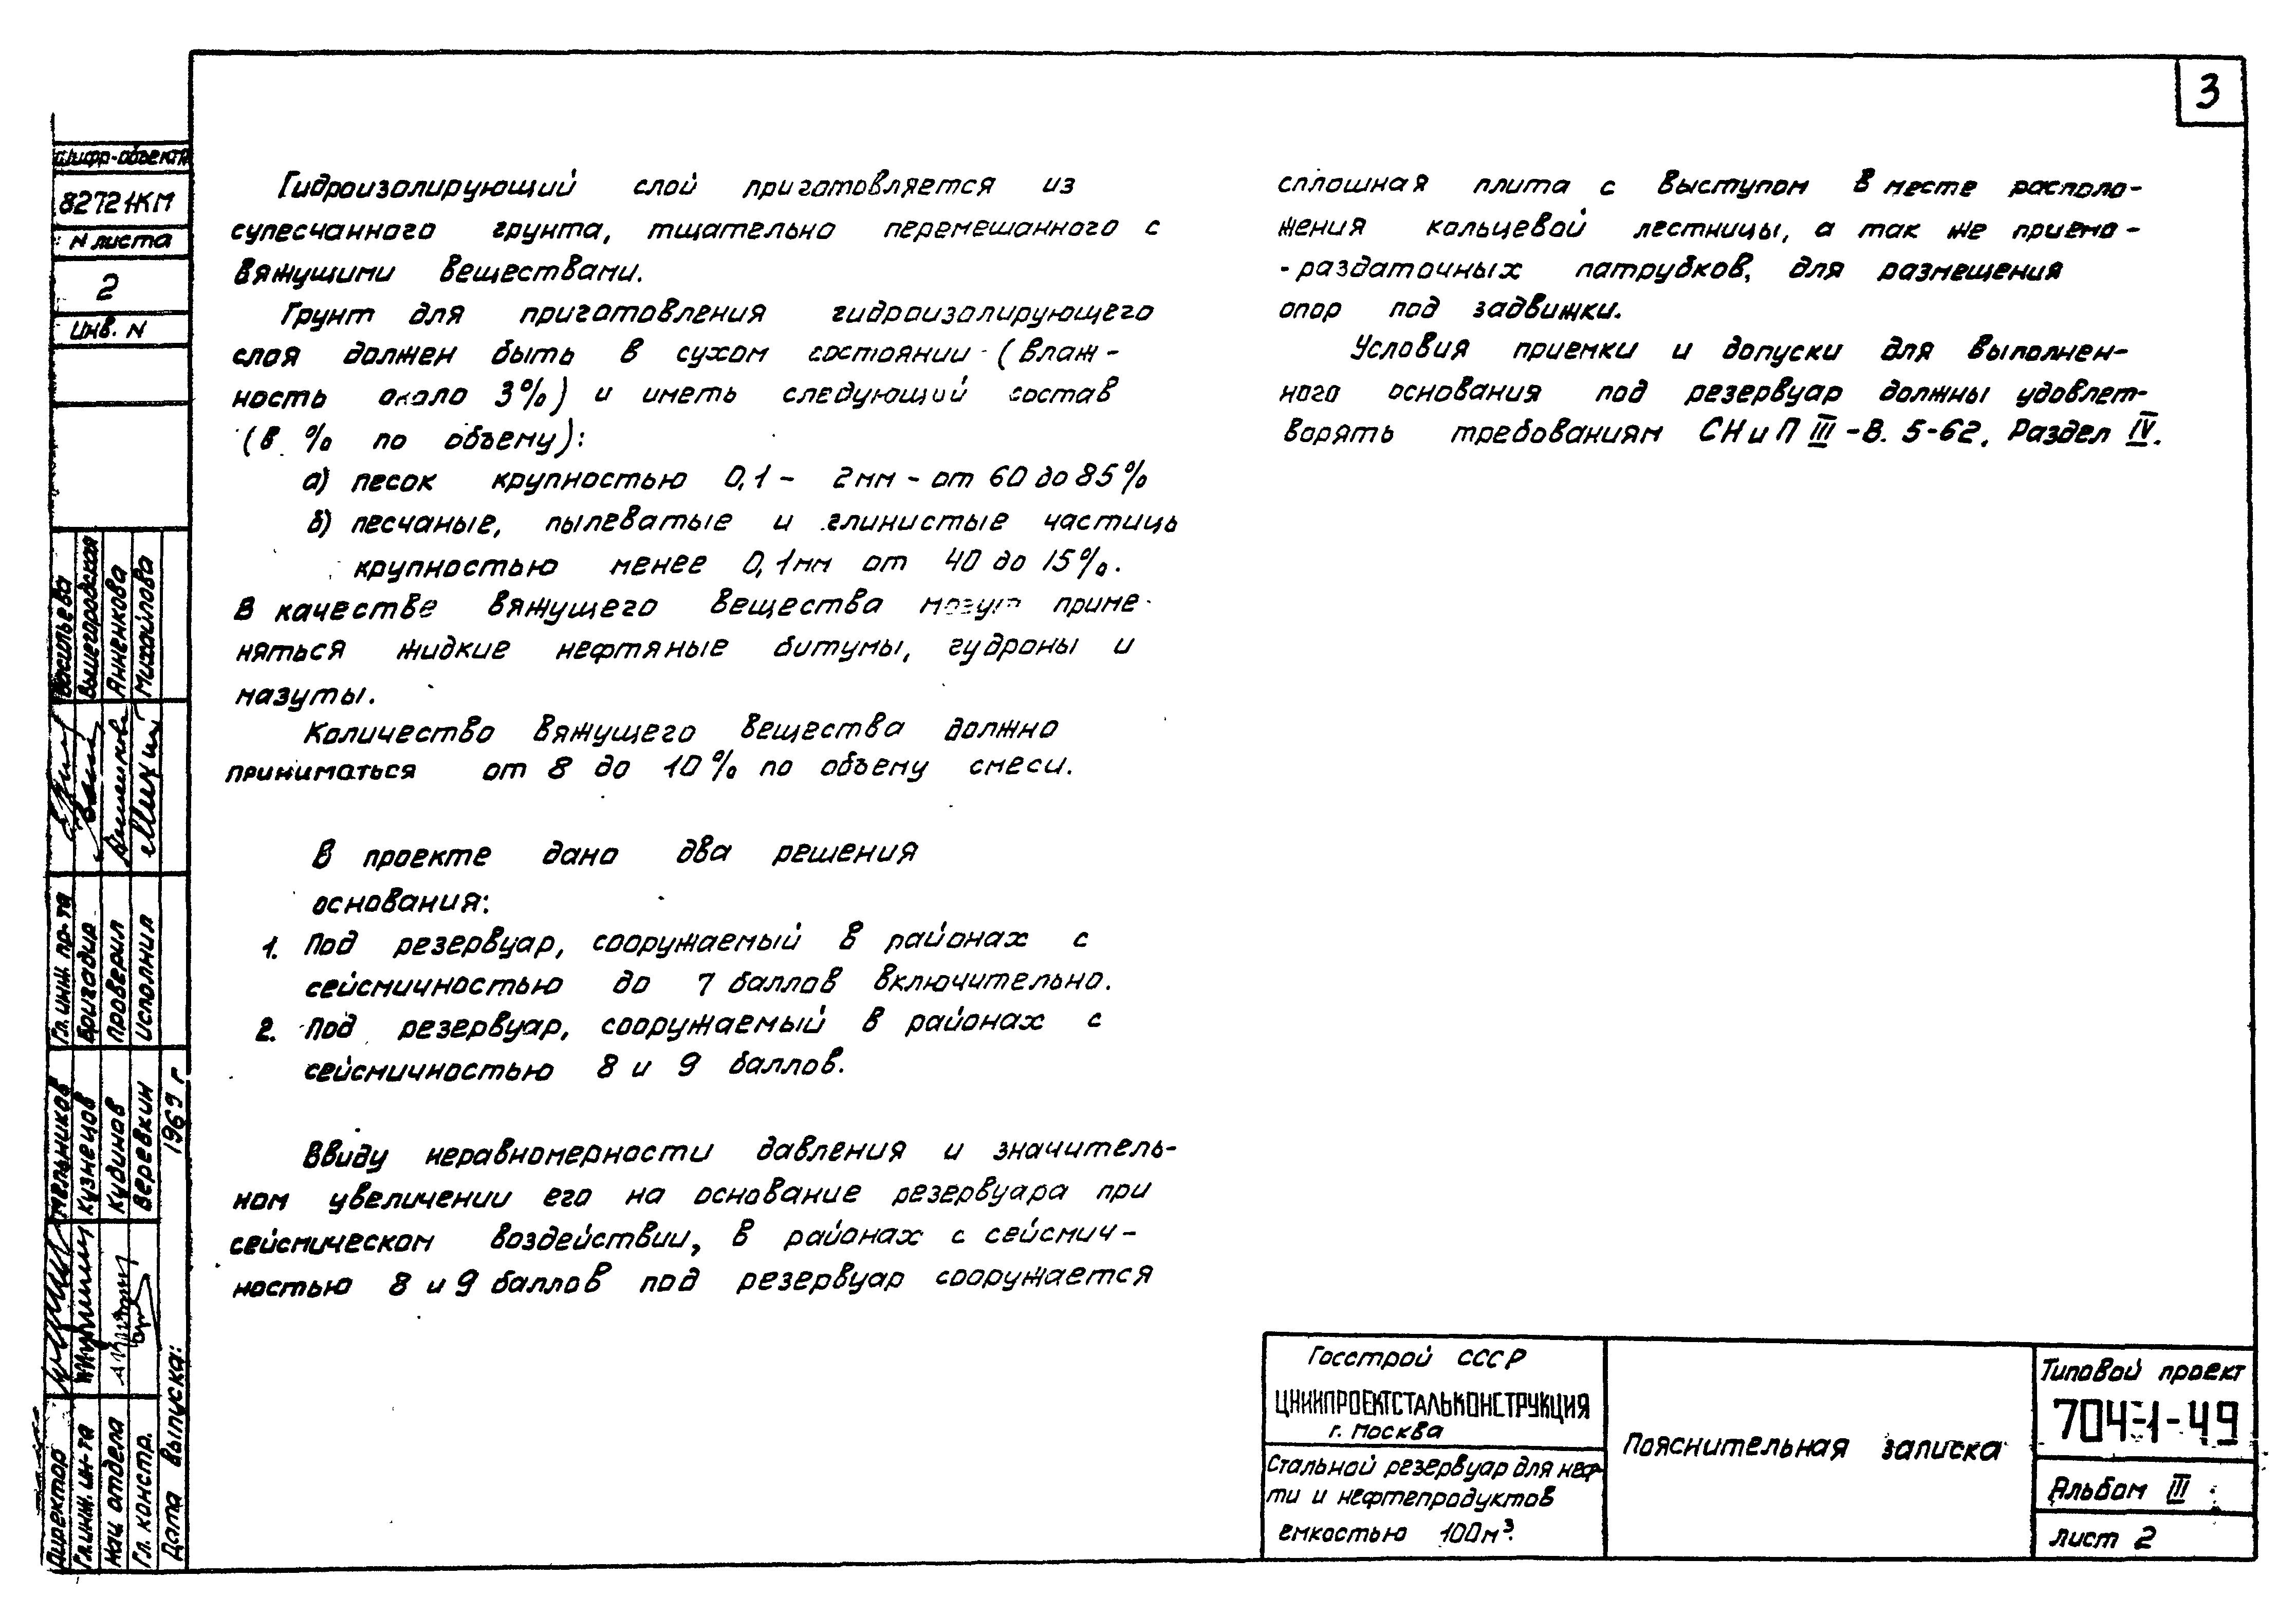 3
Гидроизолирующий слой приготовляется из
супесчанного грунта, тщательно перемешанного с
вяжущими веществами.
Грунт для приготовления гидроизолирующего
слоя должен быть в сухом состоянии (влаж-
ность около 3%) и иметь следующий состав
(в % по объему):
а) песок крупностью 0,1 - 2мм - от 60 до 85%
б) песчаные, пылеватые и глинистые частицы
крупностью менее 0,1мм от 40 до 15%.
В качестве вяжущего вещества могут приме-
няться жидкие нефтяные битумы, гудроны и
мазуты.
Количество вяжущего вещества должно
приниматься от 8 до 10% по объему смеси.
В проекте дано два решения
основания:
1. Под резервуар, сооружаемый в районах с
сейсмичностью до 7 баллов включительно.
2. Под резервуар, сооружаемый в районах с
сейсмичностью 8 и 9 баллов.
Ввиду неравномерности давления и значитель-
ном увеличении его на основание резервуара при
сейсмическом воздействии, в районах с сейсмич-
ностью 8 и 9 баллов под резервуар сооружается
сплошная плита с выступом в месте располо-
жения кольцевой лестницы, а так же приемо-
-раздаточных патрубков, для размещения
опор под задвижки.
Условия приемки и допуски для выполнен-
ного основания под резервуар должны удовлет-
ворять требованиям СНиП III -В. 5-62. Раздел IV.
Шифр-объекта
82721КМ
N листа
2
Инв. N
Васильева
Вышегородская
Анненкова
Михайлова
Гл. инж. пр-та
Бригадир
Проверил
Исполнил
Мельников
Кузнецов
Кудинов
Веревкин
1969 г
Директор
Гл. инж. ин-та
Нач. отдела
Гл. констр.
Дата выпуска:
Госстрой СССР
ЦНИИПРОЕКТСТАЛЬКОНСТРУКЦИЯ
г. Москва
Стальной резервуар для неф-
ти и нефтепродуктов
емкостью 100м³.
Пояснительная записка
Типовой проект
704-1-49
Альбом III
Лист 2